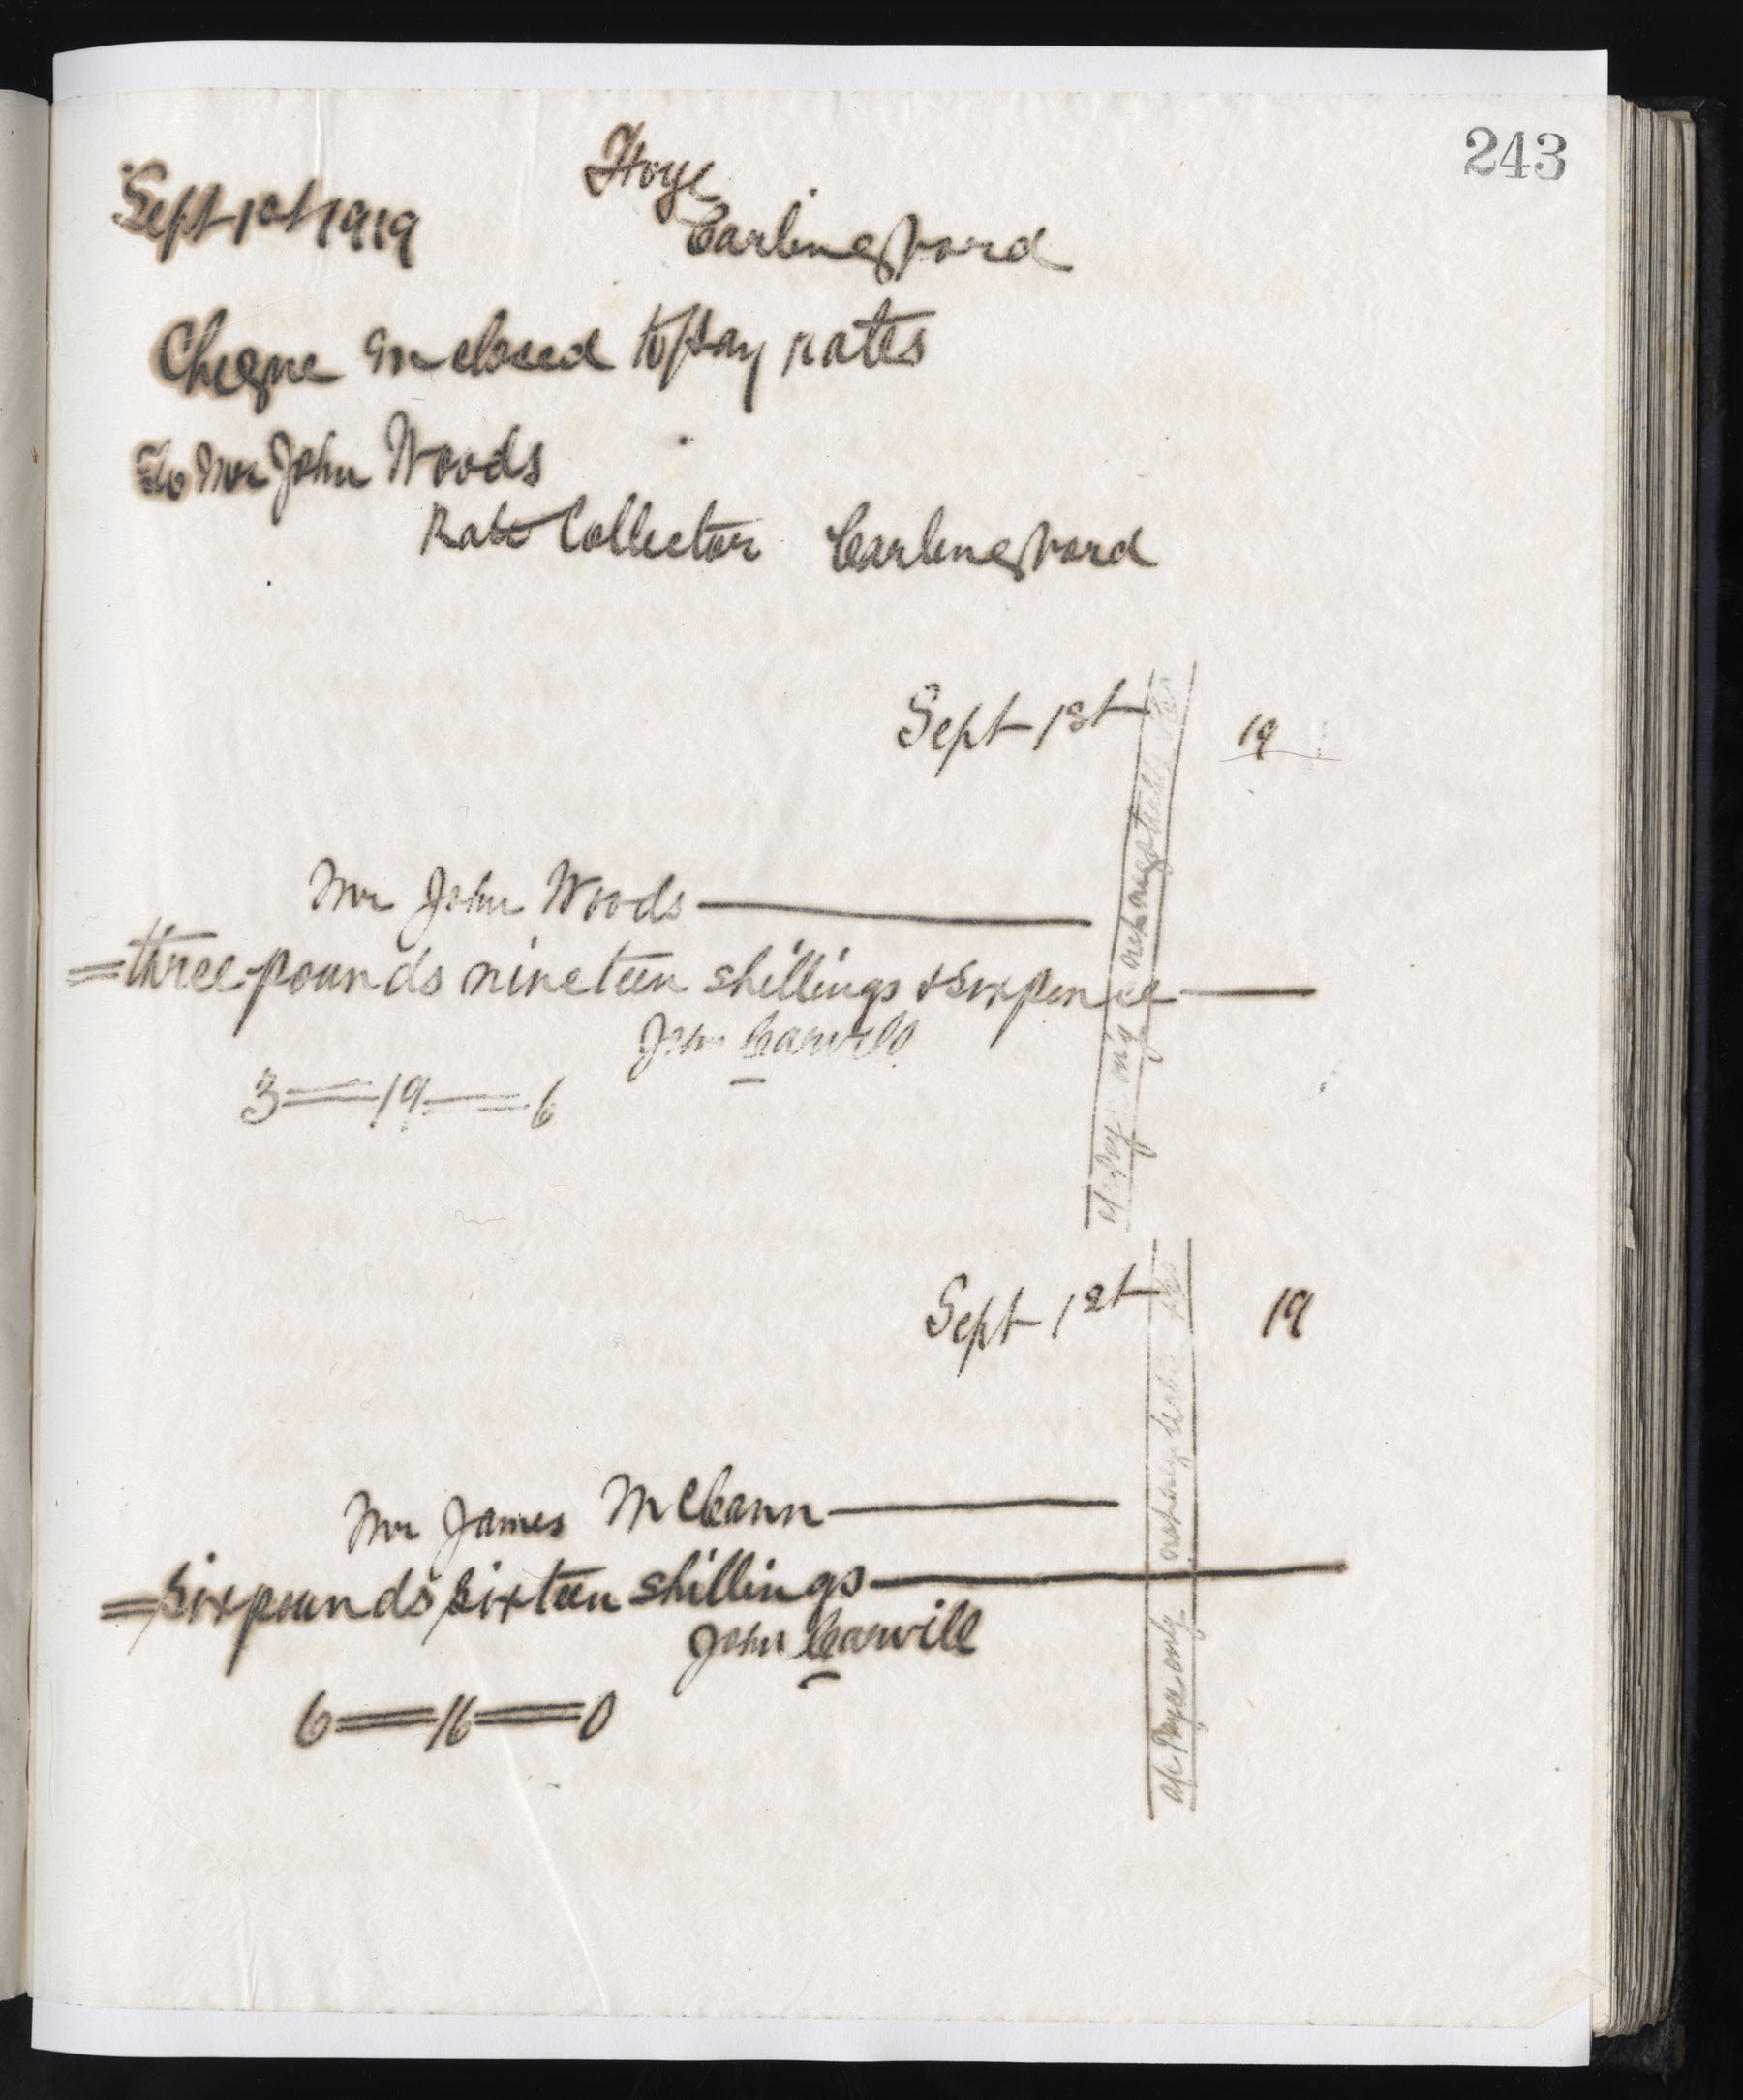 243
Sept 1st 1919
Carlingford
Cheque Enclosed to pay rates
To Mr John Woods
Rate Collector Carlingford
Sept 1st 19
Mr John Woods
= three pounds nineteen shillings & sixpence
John Carvill
3=19=6
Sept 1st 19
Mr James McCann
= six pounds sixteen shillings
John Carvill
6=16=0
a/c Payee only